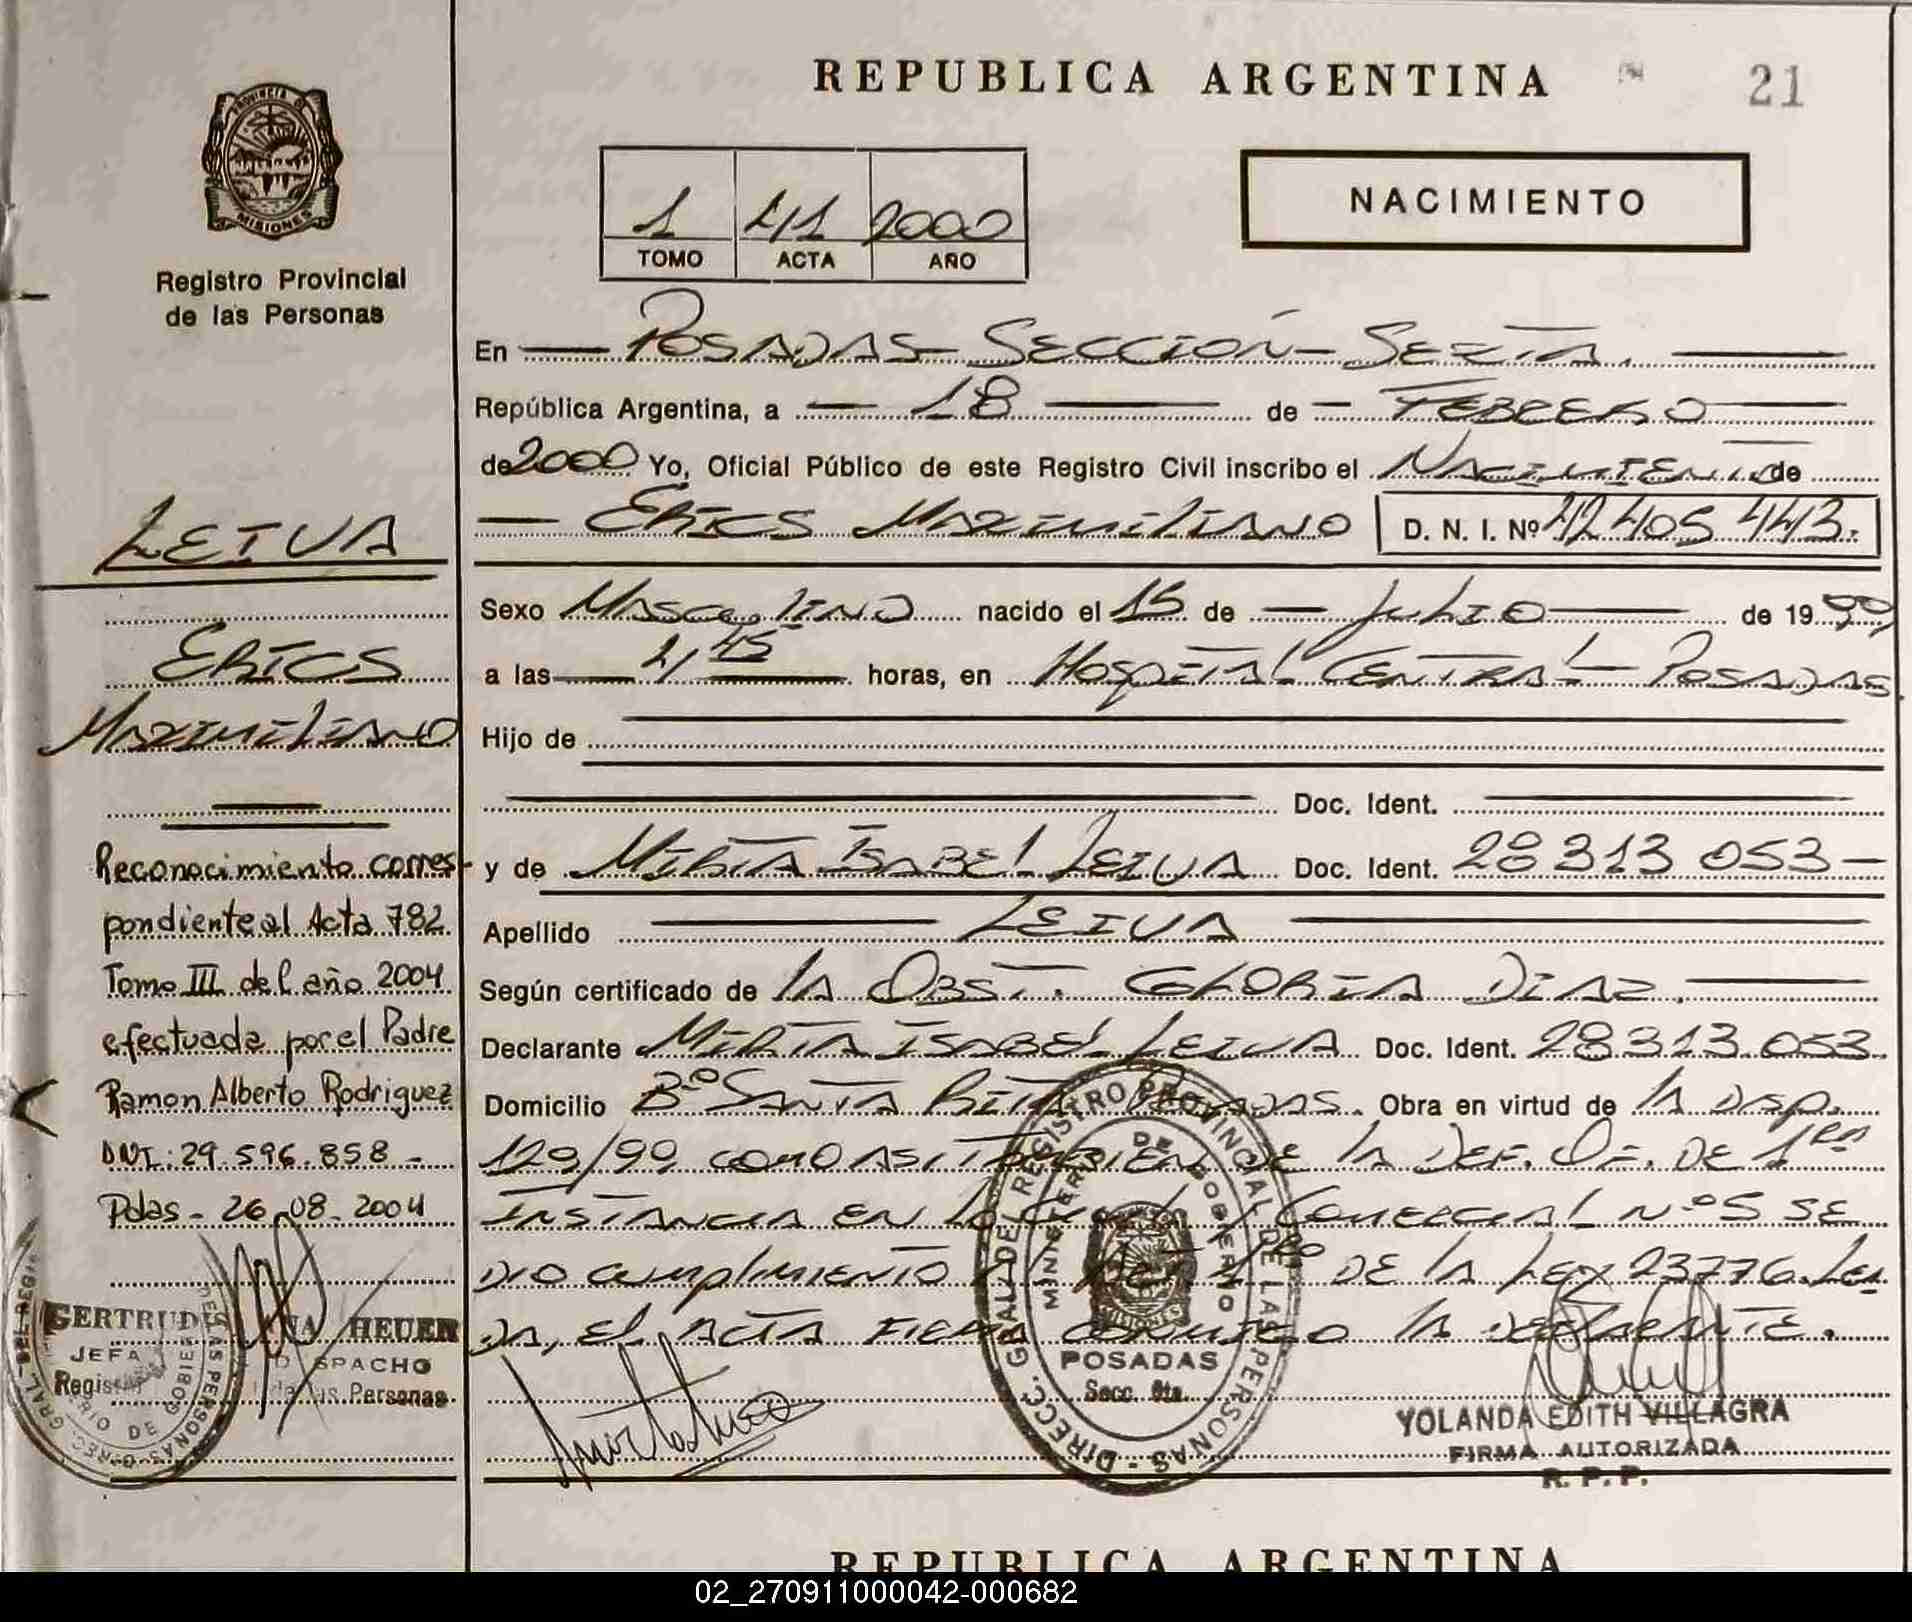 REPUBLICA ARGENTINA
21
PROVINCIA D
MISIONES
Registro Provincial
de las Personas
1 41 2000
TOMO ACTA AÑO
NACIMIENTO
En POSADAS - SECCIÓN - SEXTA.
República Argentina, a 18 de FEBRERO
de 2000 Yo, Oficial Público de este Registro Civil inscribo el NACIMIENTO de
ERICS MAXIMILIANO D. N. I. Nº 42 405 443.
LEIVA
ERICS
MAXIMILIANO
Sexo MASCULINO nacido el 15 de JULIO de 1999
a las 4,45 horas, en HOSPITAL CENTRAL - POSADAS
Hijo de
Doc. Ident.
y de MIRTA ISABEL LEIVA Doc. Ident. 28 313 053 -
Apellido LEIVA
Según certificado de LA OBST. GLORIA DIAZ.
Declarante MIRTA ISABEL LEIVA Doc. Ident. 28.313.053.
Domicilio Bº SANTA RITA POSADAS. Obra en virtud de LA DISP.
120/99, COMO ASI TAMBIEN DE LA DEF. OF. DE 1ra
INSTANCIA EN LO CIVIL Y COMERCIAL Nº 5 SE
DIO CUMPLIMIENTO AL ART. 1ro DE LA LEY 23776. LEI
DA, EL ACTA FIRMA CONMIGO LA DECLARANTE.
Reconocimiento corres-
pondiente al Acta 782
Tomo III del año 2004
efectuada por el Padre
Ramon Alberto Rodriguez
DNI: 29.596.858 -
Pdas - 26-08-2004
GERTRUDI NA HEUER
JEFA D SPACHO
Regist de las Personas
DIREC. GRAL. DE REGIS
DE LAS PERSONAS
MINISTERIO DE GOBIE
DIRECC. GRAL. DEL REGISTRO PROVINCIAL DE LAS PERSONAS -
MINISTERIO DE GOBIERNO
MISIONES
POSADAS
Secc. 6ta.
YOLANDA EDITH VILLAGRA
FIRMA AUTORIZADA
R. P. P.
REPUBLICA ARGENTINA
02_270911000042-000682